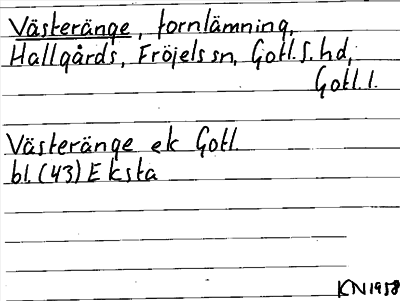 Västeränge, fornlämning,
Hallgårds, Fröjels sn, Gotl. S. hd,
Gotl. l.
Västeränge ek Gotl.
bl. (43) Eksta
KN 1958